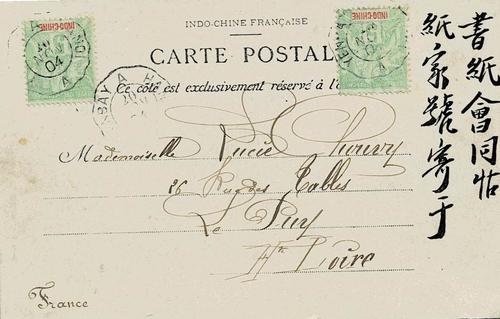 INDO-CHINE FRANÇAISE
CARTE POSTAL
Ce côté est exclusivement réservé à l'
INDO-CHINE
INDO-CHINE
04
A
04
A
Mademoiselle Lucie
Rue des Tables
Le Puy
Hte Loire
France
書紙會同帖
紙家號寄于